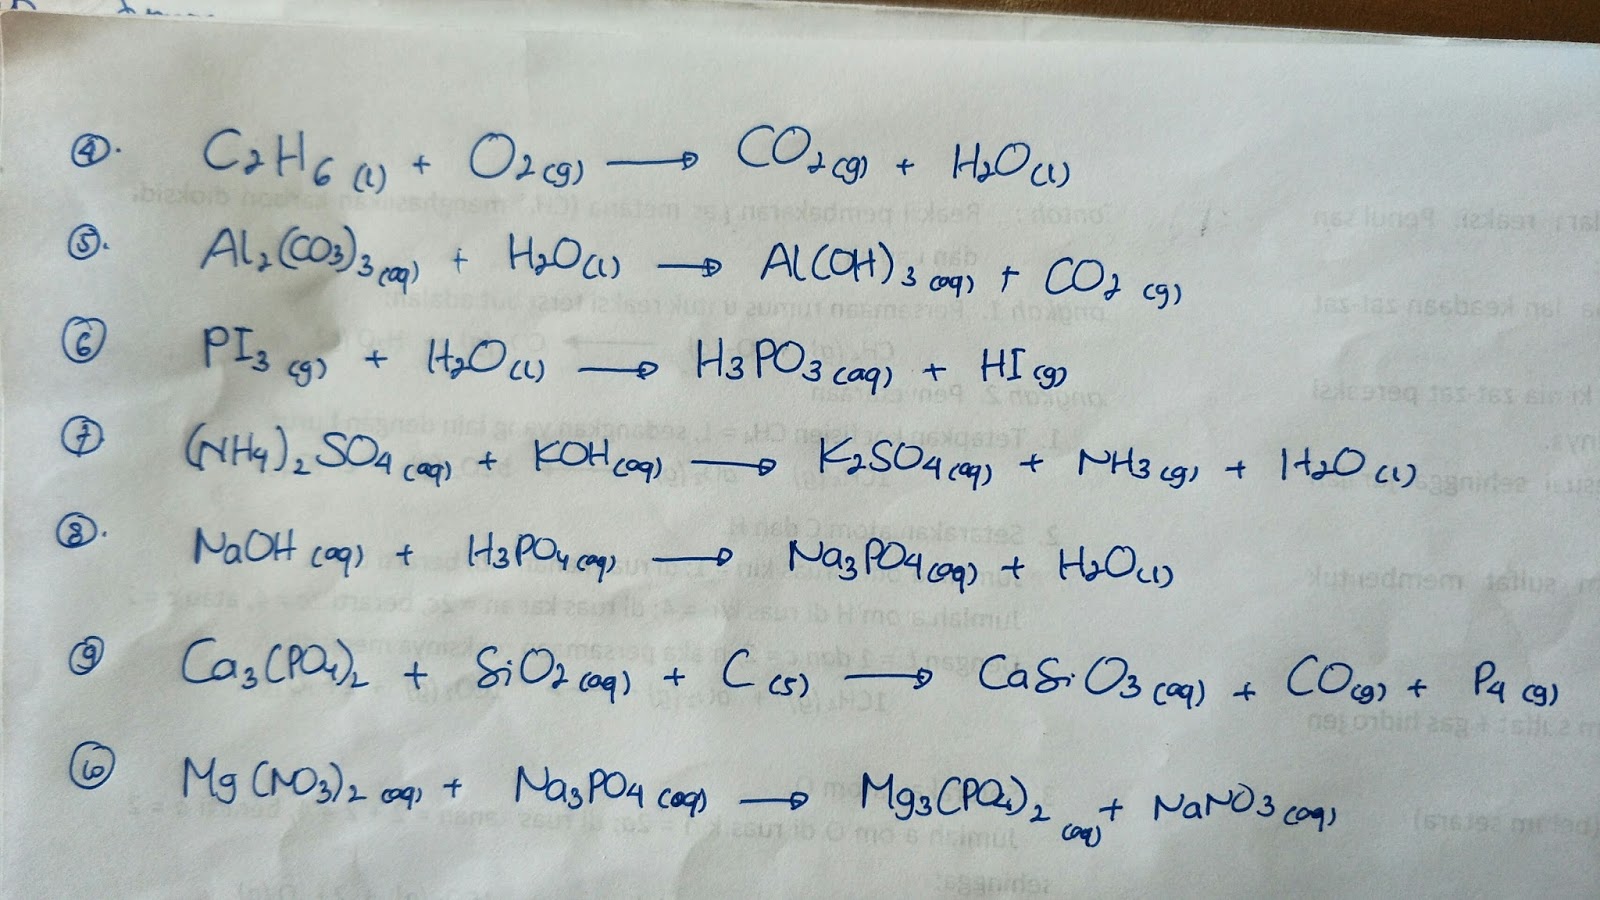 ④. C2H6 (l) + O2(g) → CO2(g) + H2O(l)
⑤. Al2(CO3)3(aq) + H2O(l) → Al(OH)3(aq) + CO2 (g)
⑥ PI3 (g) + H2O(l) → H3PO3(aq) + HI(g)
⑦ (NH4)2SO4(aq) + KOH(aq) → K2SO4(aq) + NH3(g) + H2O(l)
⑧. NaOH(aq) + H3PO4(aq) → Na3PO4(aq) + H2O(l)
⑨ Ca3(PO4)2 + SiO2(aq) + C(s) → CaSiO3(aq) + CO(g) + P4(g)
⑩ Mg(NO3)2(aq) + Na3PO4(aq) → Mg3(PO4)2(aq) + NaNO3(aq)